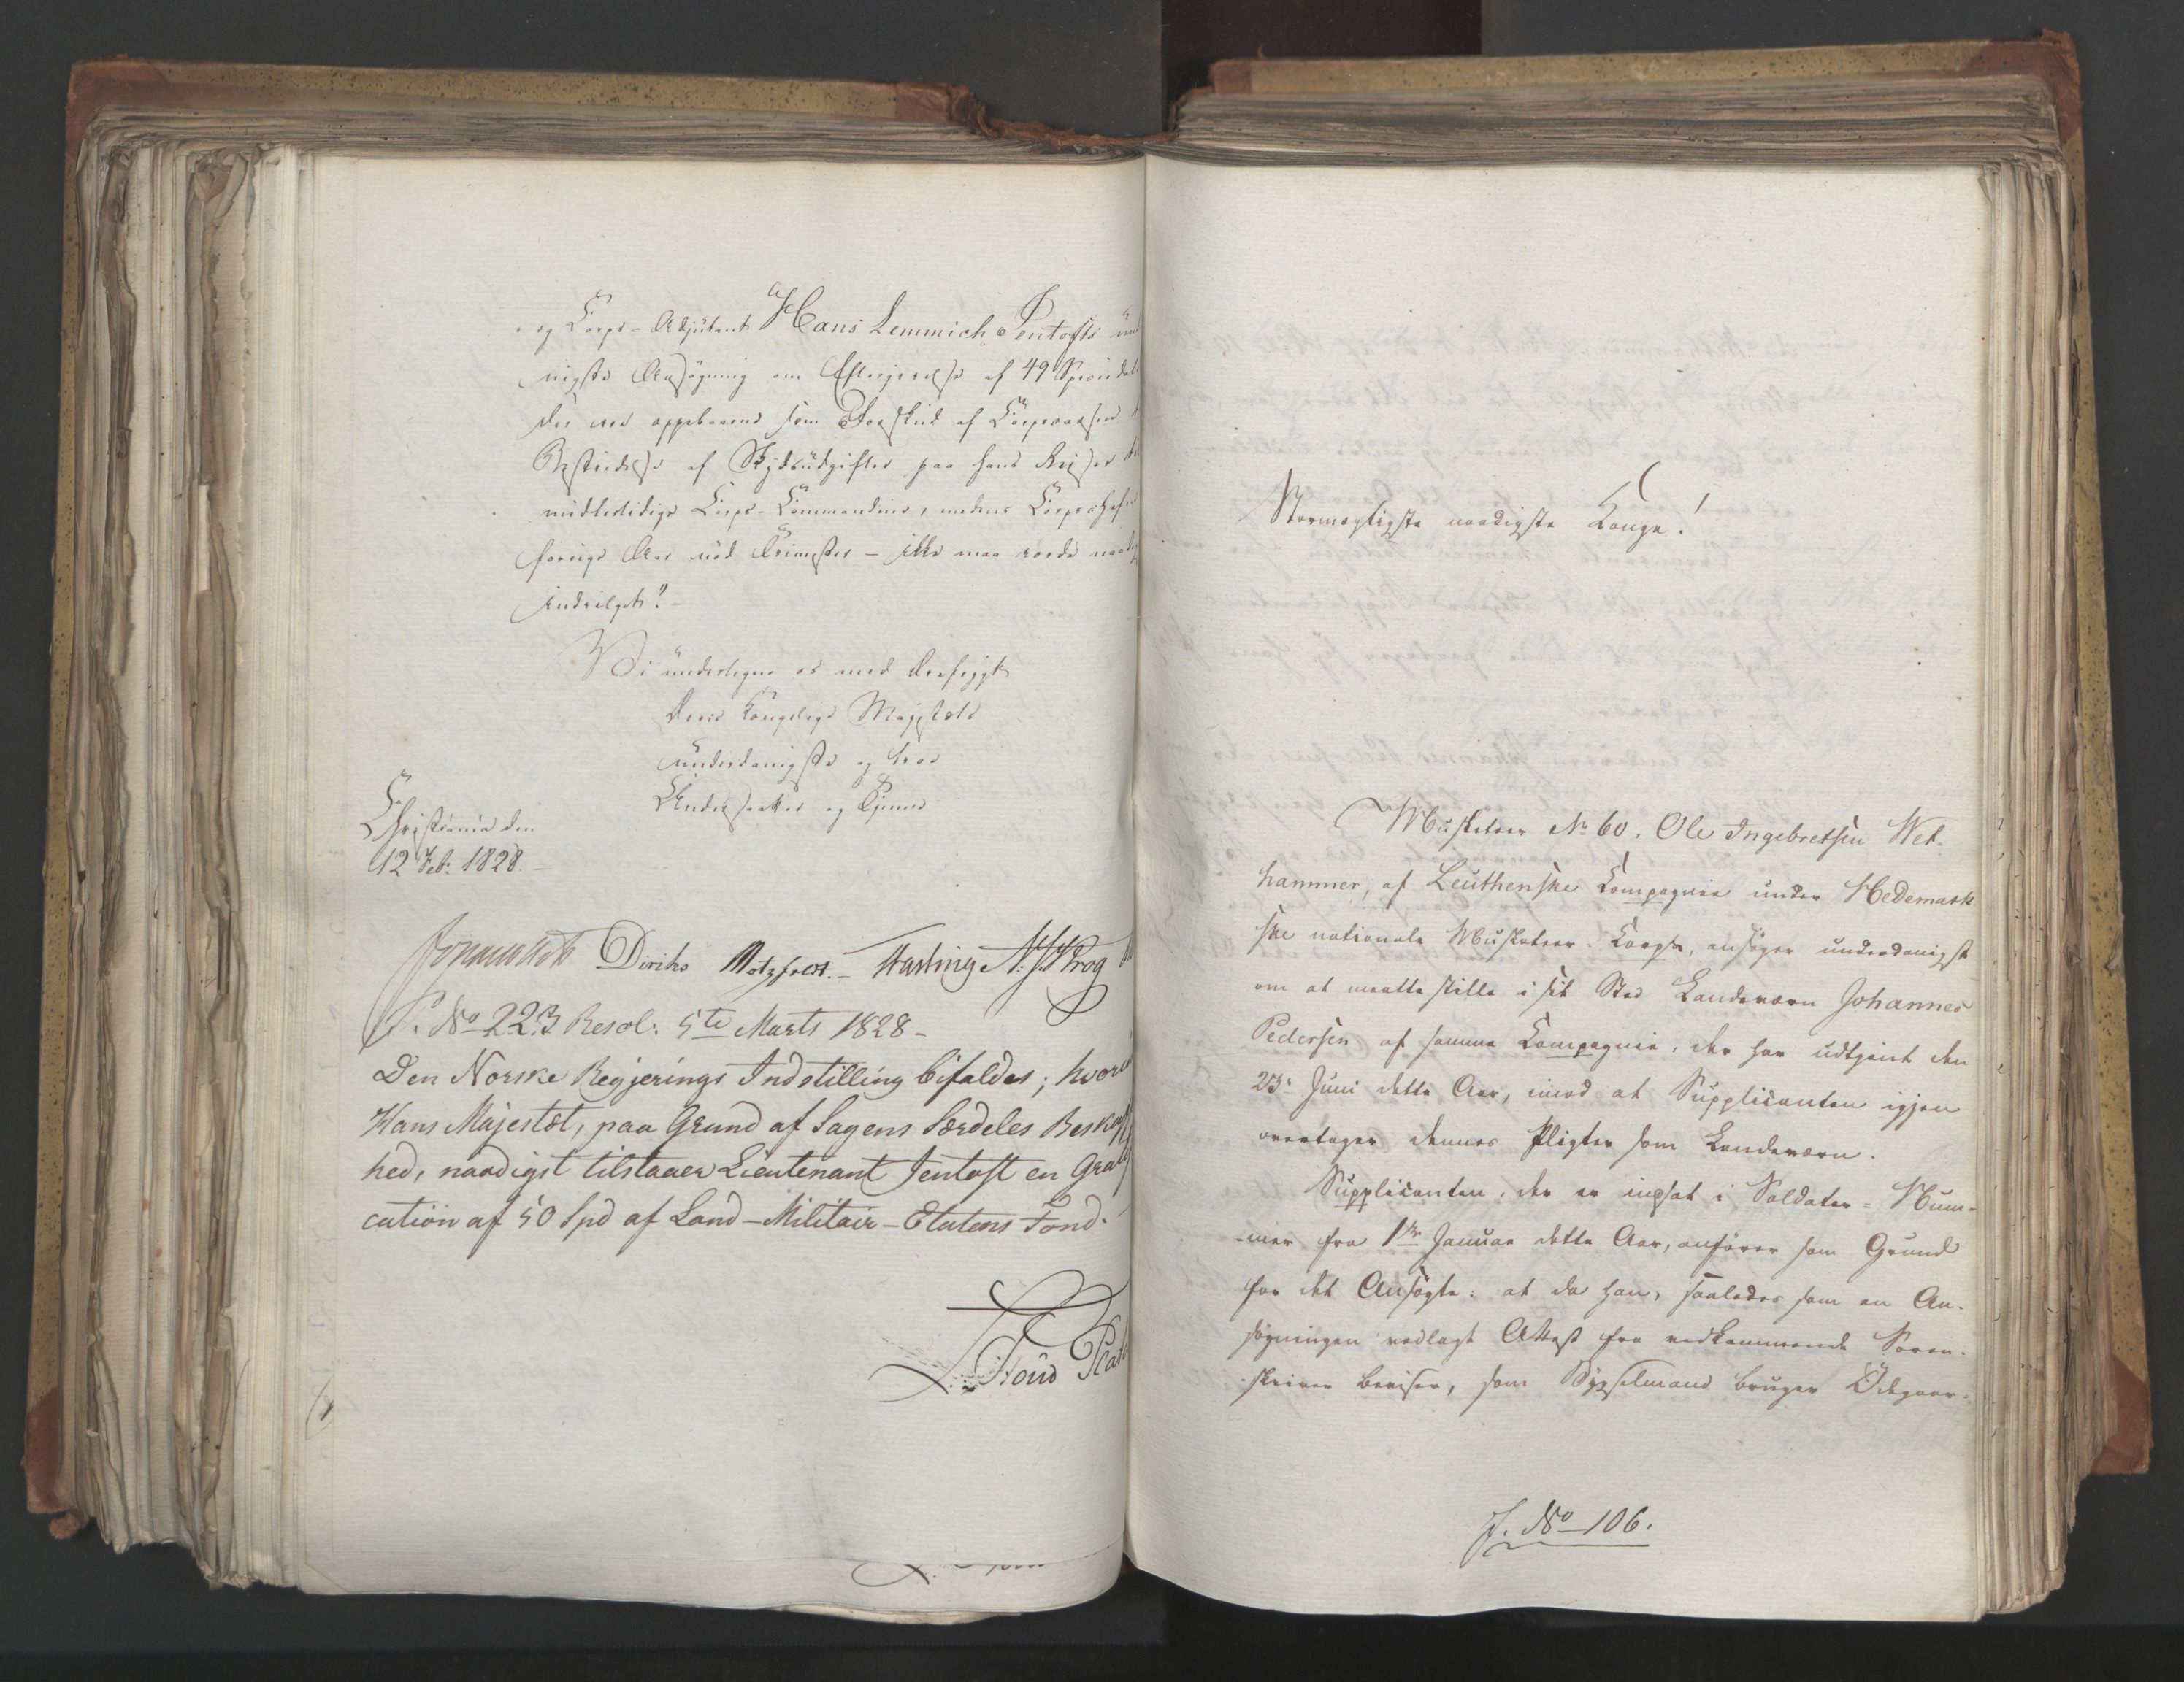 og Corps-Adjutant Hans Lemmich Jentofts und
nigste Ansögning om Eftergivelse af 49 Speciedal
der ere oppebaarne som Forskud af Corpscassen
Bestridelse af Skydsudgifter paa hans Reiser
midlertidige Corps-Commandeur, medens Corpschefen
forrige Aar ved Trimester – ikke maa vorde naadig
indvilget?
Vi undertegne os med dybeste
Deres Kongelige Majestæts
underdanigste og troe
Undersaatter og Tjenere
Christiania den
12 Feb: 1828.
Diriks Motzfeldt. Fasting N: J. Krog
S. No 223 Resol: 5te Marts 1828 –
Den Norske Regjerings Indstilling bifaldes; hvorved
Hans Majestæt, paa Grund af Sagens Særdeles Beskaffen
hed, naadigst tilstaaer Lieutenant Jentoft en Gratifi
cation af 50 Spd af Land-Militair-Etatens Fond.
Stormægtigste naadigste Konge!
Musketeer No 60. Ole Ingebretsen Wet-
hammer, af Leuthenske Compagnie under Hedemark
ske nationale Musketeer-Corps, ansøger underdanigst
om at maatte stille i sit Sted Landeværn Johannes
Pedersen af samme Compagnie, der har udtjent den
23de Juni dette Aar, imod at Supplicanten igjen
overtager dennes Pligter som Landeværn.
Supplicanten, der er indsat i Soldater-Num-
mer fra 1ste Januar dette Aar, anfører som Grund
for det Ansøgte: at da han, saaledes som en An-
søgningen vedlagt Attest fra vedkommende Soren-
skriver beviser, som Sysselmand bruger Ödegaar-
J. No 106.